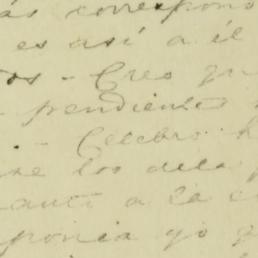 ás correspon
es así a él
os - Creo qu
pendiente
. - Celebro h
se los dela
ante a la c
ponia yo q